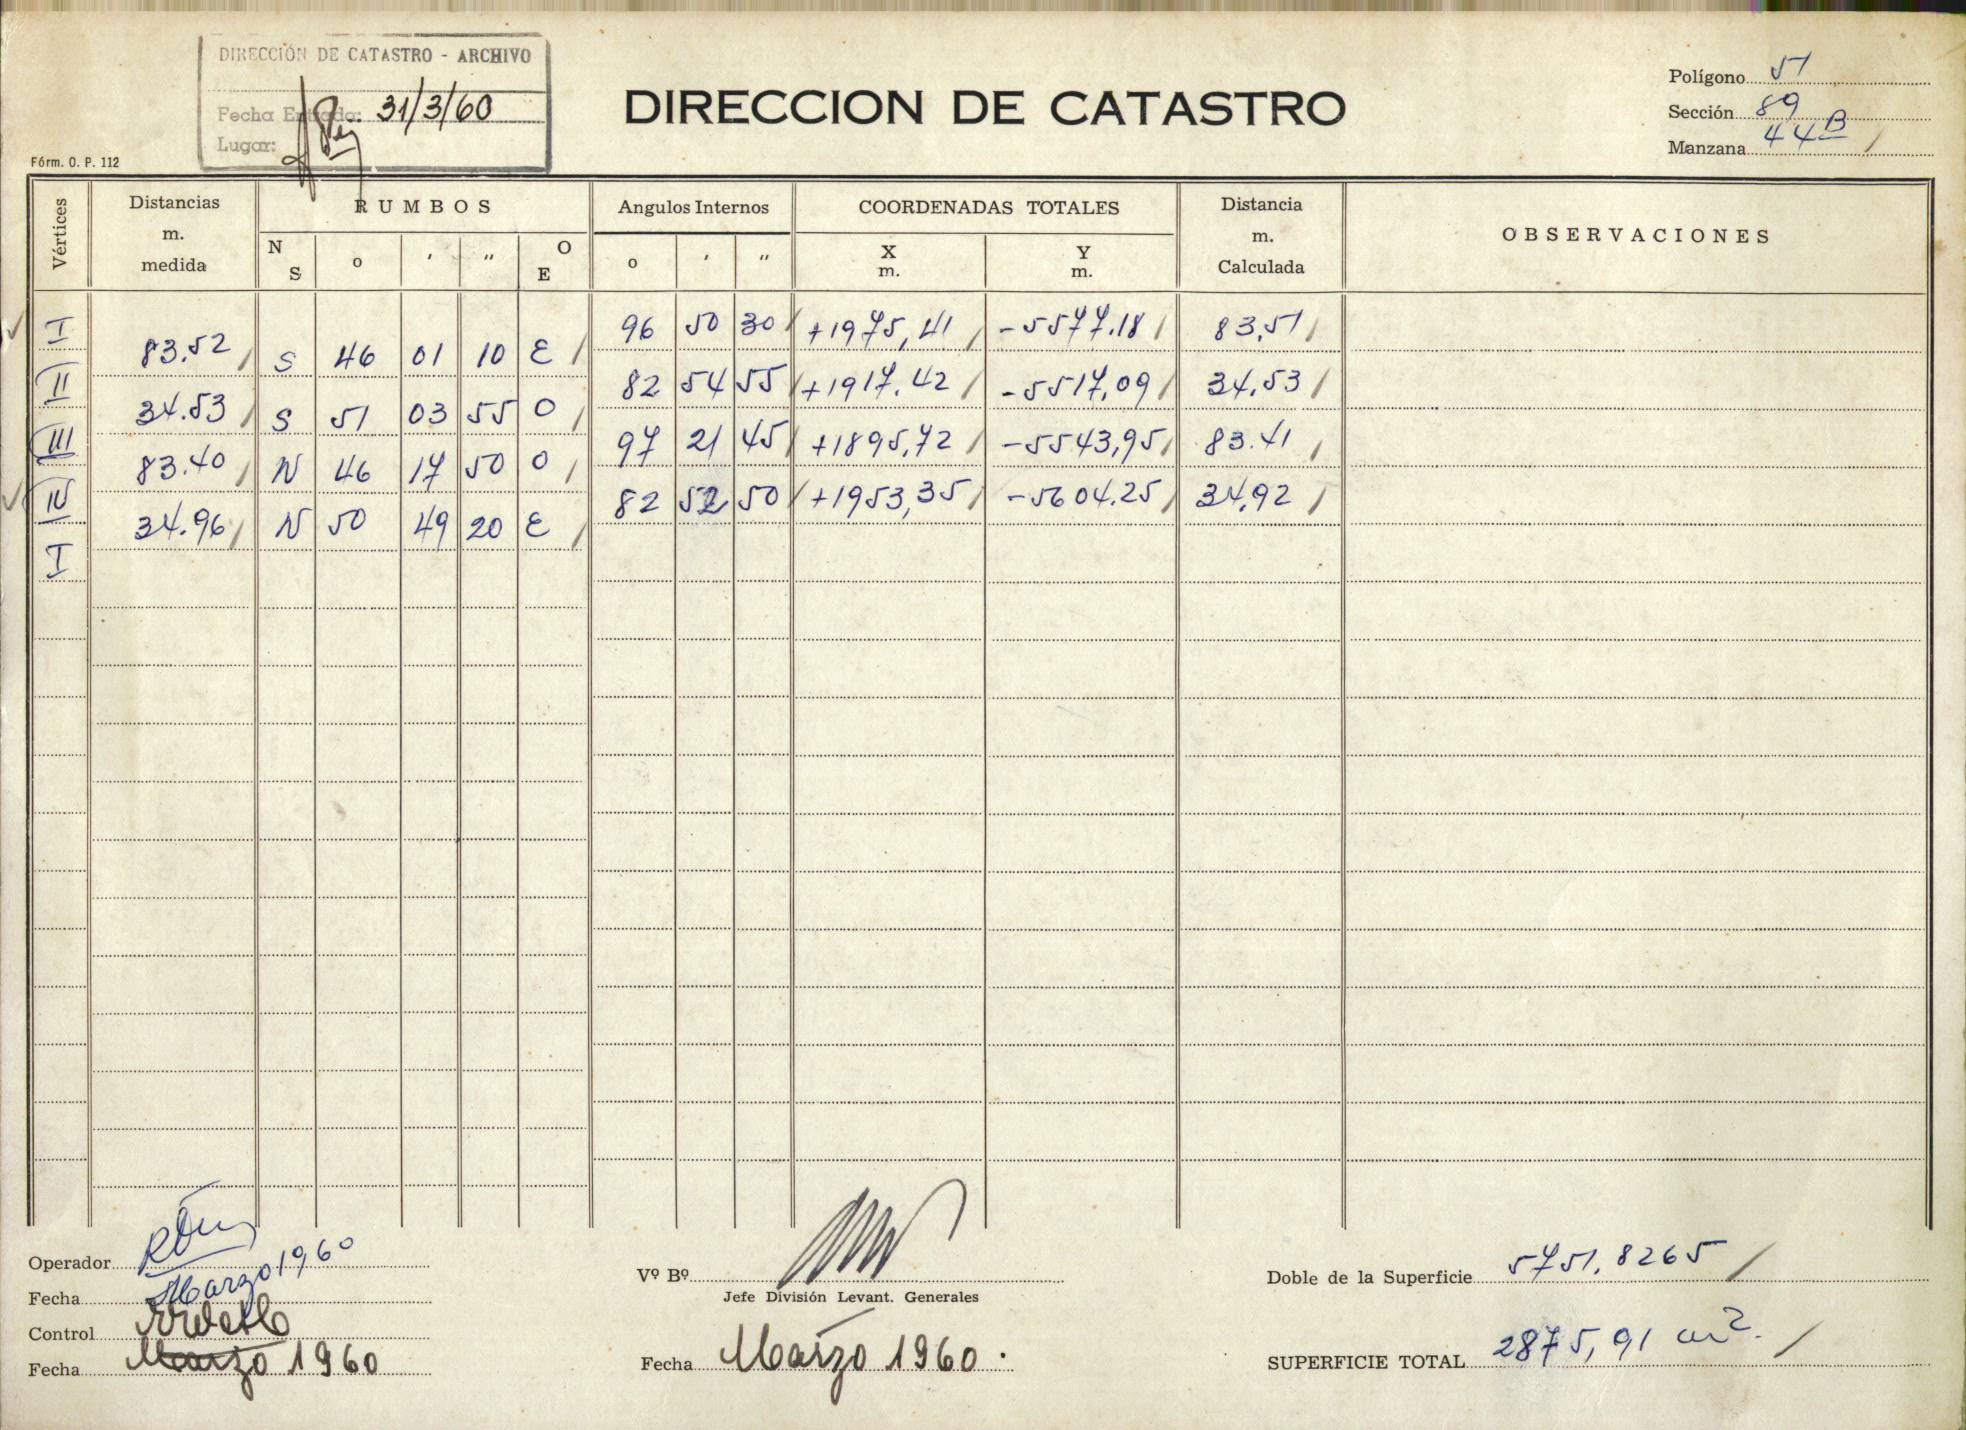 DIRECCIÓN DE CATASTRO - ARCHIVO
Fecha Entrada: 31/3/60
Lugar:
Fórm. O. P. 112
DIRECCION DE CATASTRO
Polígono 51
Sección 89
Manzana 44B
Vértices
Distancias m. medida
RUMBOS
N S o ′ ″ O E
Angulos Internos
o ′ ″
COORDENADAS TOTALES
X m. Y m.
Distancia m. Calculada
OBSERVACIONES
I 96 50 30 +1975,41 -5577.18 83,51
83.52 S 46 01 10 E
II 82 54 55 +1917.42 -5517,09 34.53
34.53 S 51 03 55 O
III 97 21 45 +1895,72 -5543,95 83.41
83.40 N 46 17 50 O
IV 82 52 50 +1953,35 -5604.25 34,92
34.96 N 50 49 20 E
I
Operador
Fecha Marzo 1960
Control
Fecha Marzo 1960
Vº Bº
Jefe División Levant. Generales
Fecha Marzo 1960.
Doble de la Superficie 5751.8265
SUPERFICIE TOTAL 2875,91 m².